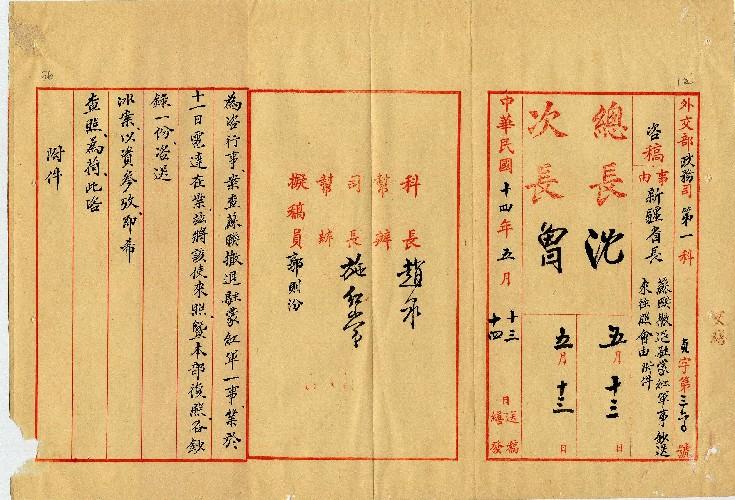 12
外交部政務司第一科
咨稿
事由
新疆省長
蘇聯撤退駐蒙紅軍事鈔送
來往照會由附件
總長沈
五月十三日
次長曾
五月十三日
中華民國十四年五月
十三日送稿
十四日繕發
科長趙
幫辦
司長施紹常
幫辦
擬稿員郭則汾
56
為咨行事案查蘇聯撤退駐蒙紅軍一事業於
十一日電達在案茲將該使來照暨本部復照各鈔
錄一份咨送
冰案以資參攷即希
查照為荷此咨
附件